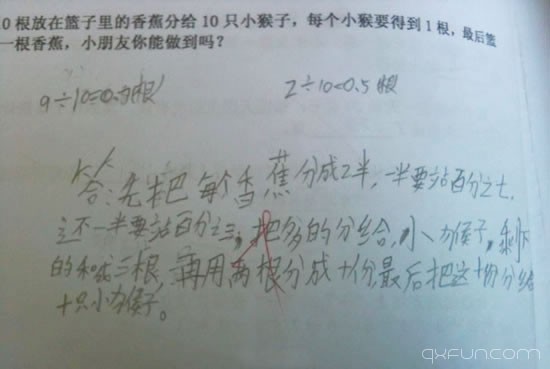 0根放在篮子里的香蕉分给10只小猴子，每个小猴要得到1根，最后篮
一根香蕉，小朋友你能做到吗？
9÷10=0.9(根) 2÷10=0.5根
答：先把每个香蕉分成2半，一半要站百分之七，
还不一半要站百分之三，把多的分给小猴子，剩下
的和成三根，再用两根分成十份，最后把这十份分给
十只小猴子。
qxfun.com